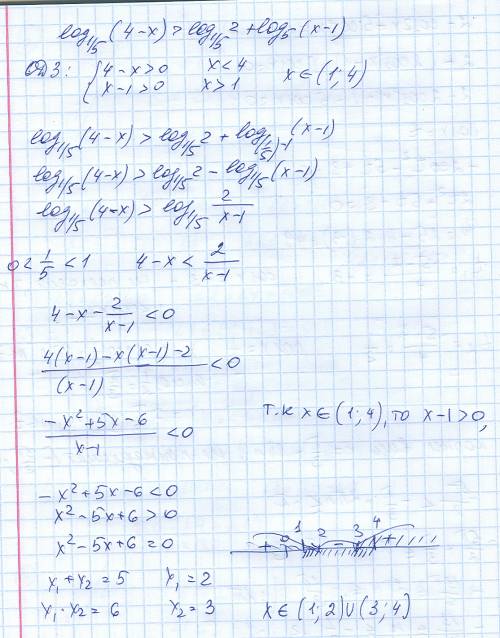 log₁/₅(4-x) > log₁/₅2 + log₅(x-1)
ОДЗ: { 4-x>0   x<4   x∈(1;4)
x-1>0   x>1
log₁/₅(4-x) > log₁/₅2 + log₍₁/₅₎₋₁(x-1)
log₁/₅(4-x) > log₁/₅2 - log₁/₅(x-1)
log₁/₅(4-x) > log₁/₅ 2/(x-1)
0< 1/5 <1   4-x < 2/(x-1)
4-x - 2/(x-1) <0
(4(x-1)-x(x-1)-2)/(x-1) <0
(-x²+5x-6)/(x-1) <0   т.к x∈(1;4), то x-1>0,
-x²+5x-6<0
x²-5x+6>0
x²-5x+6=0   + 0 1 2 - 3 4 +
x₁+x₂=5   x₁=2
x₁·x₂=6   x₂=3   x∈(1;2)∪(3;4)